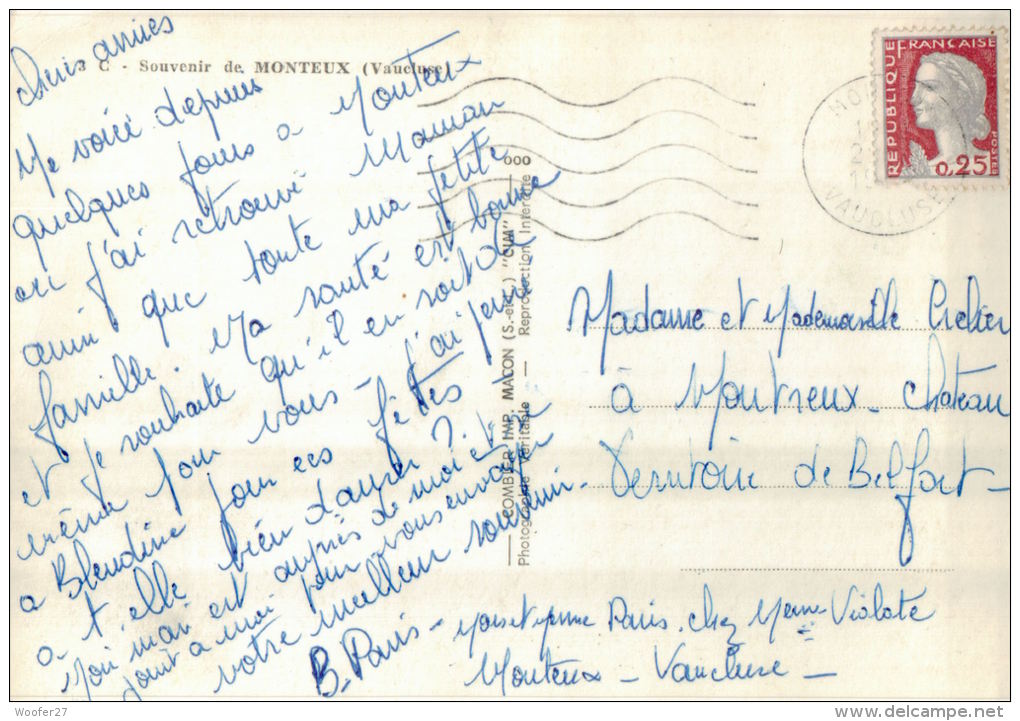 3 C - Souvenir de MONTEUX (Vaucluse)
Chers amies
Me voici depuis
quelques jours a Monteux
ou j'ai retrouvé Maman
ainsi que toute ma petite
famille. Ma santé est bonne
et je souhaite qu'il en soit de
même pour vous. J'ai pensé
a Blandine pour ces fêtes
a t elle bien dansé ?
Mon mari est auprès de moi et se
joint a moi pour vous envoyer
votre meilleur souvenir.
B. Paris
COMBIER IMP. MACON (S.-et-L.) "CIM"
Photographie Véritable — Reproduction Interdite
REPUBLIQUE FRANÇAISE
POSTES
0,25
VAUCLUSE
Madame et Mademoiselle
a Montreux-Chateau
Territoire de Belfort
Paris. chez Mme Violate
Monteux - Vaucluse -
Woofer27
www.delcampe.net